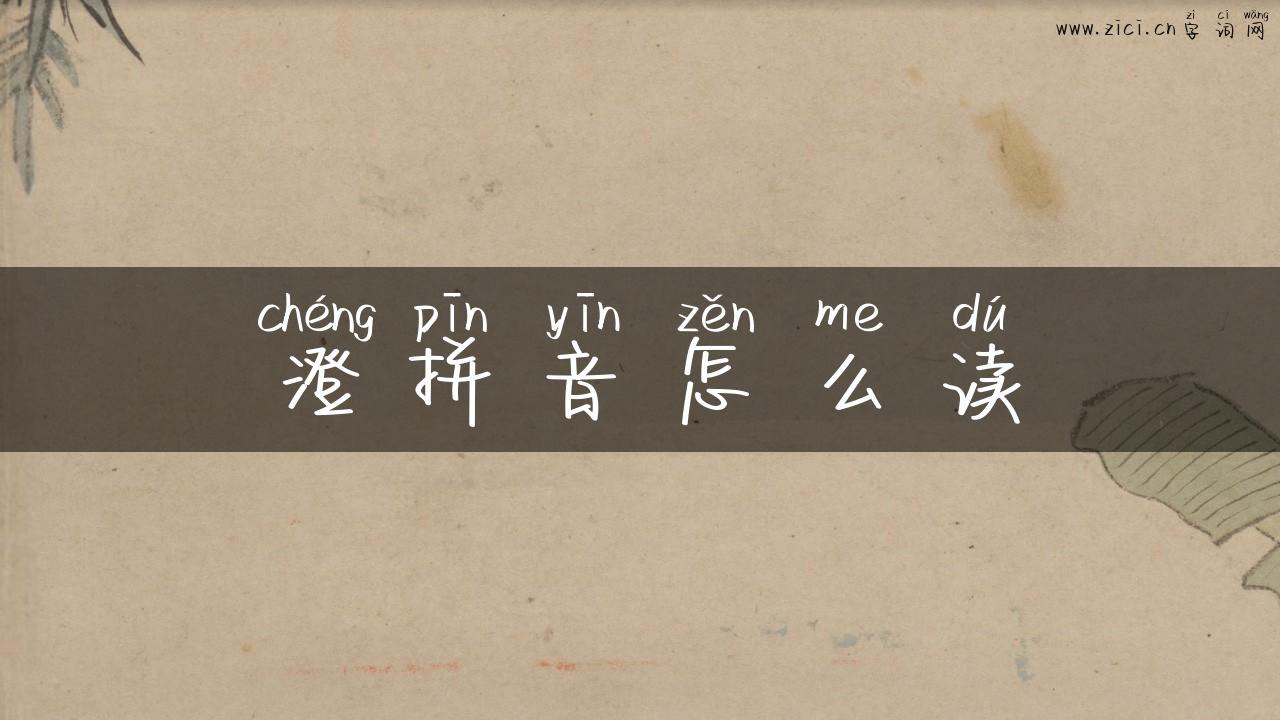 zì cí wǎng
www.zici.cn 字 词 网
chéng pīn yīn zěn me dú
澄 拼 音 怎 么 读